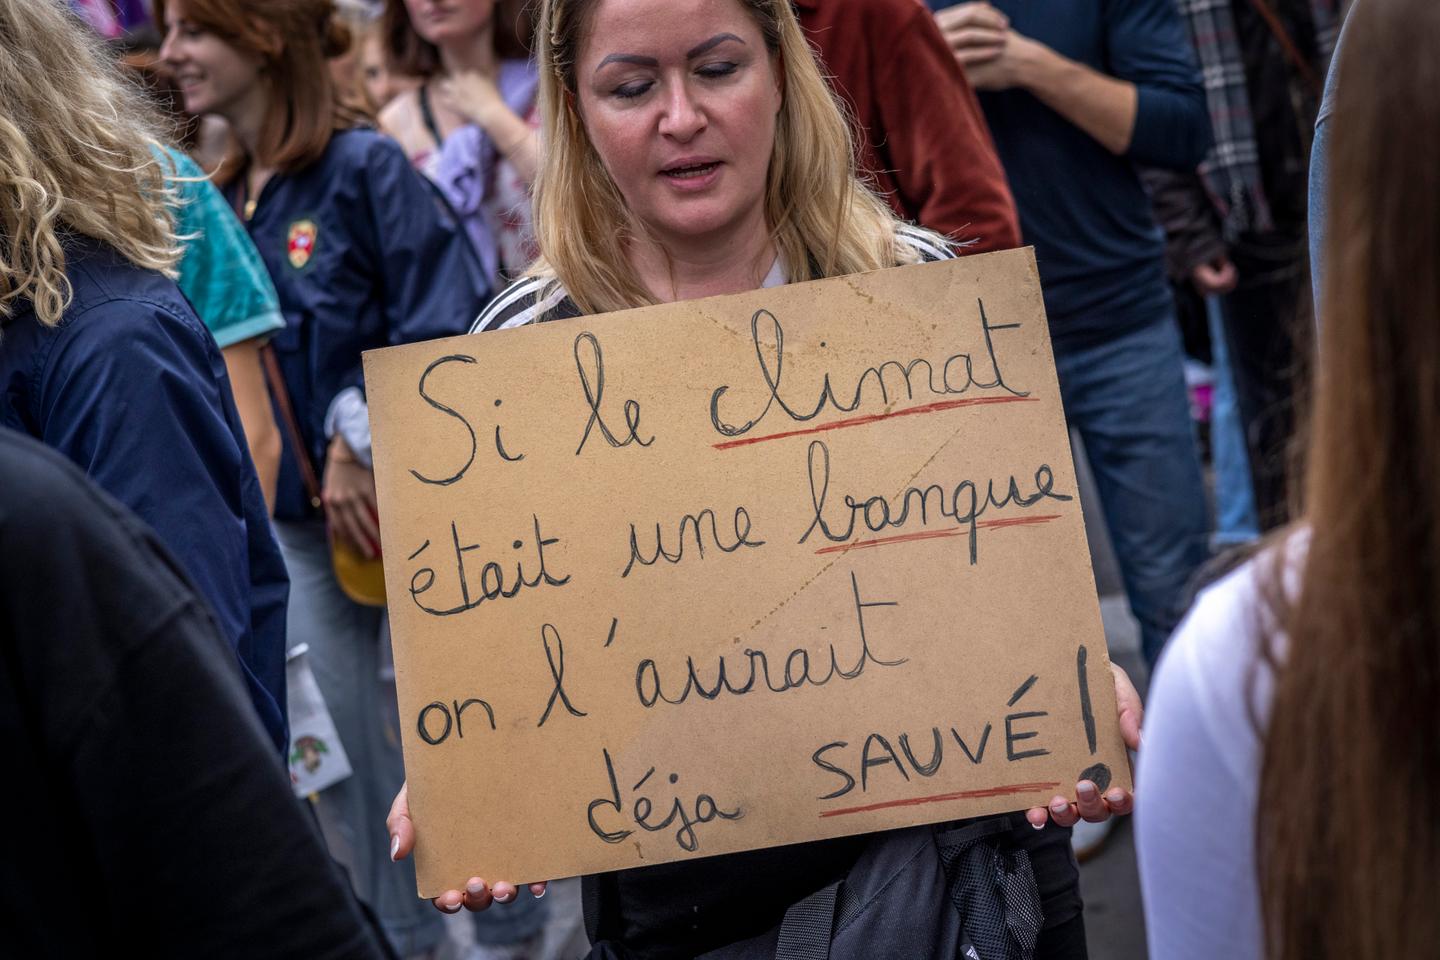 Si le climat
était une banque
on l'aurait
déja SAUVÉ!